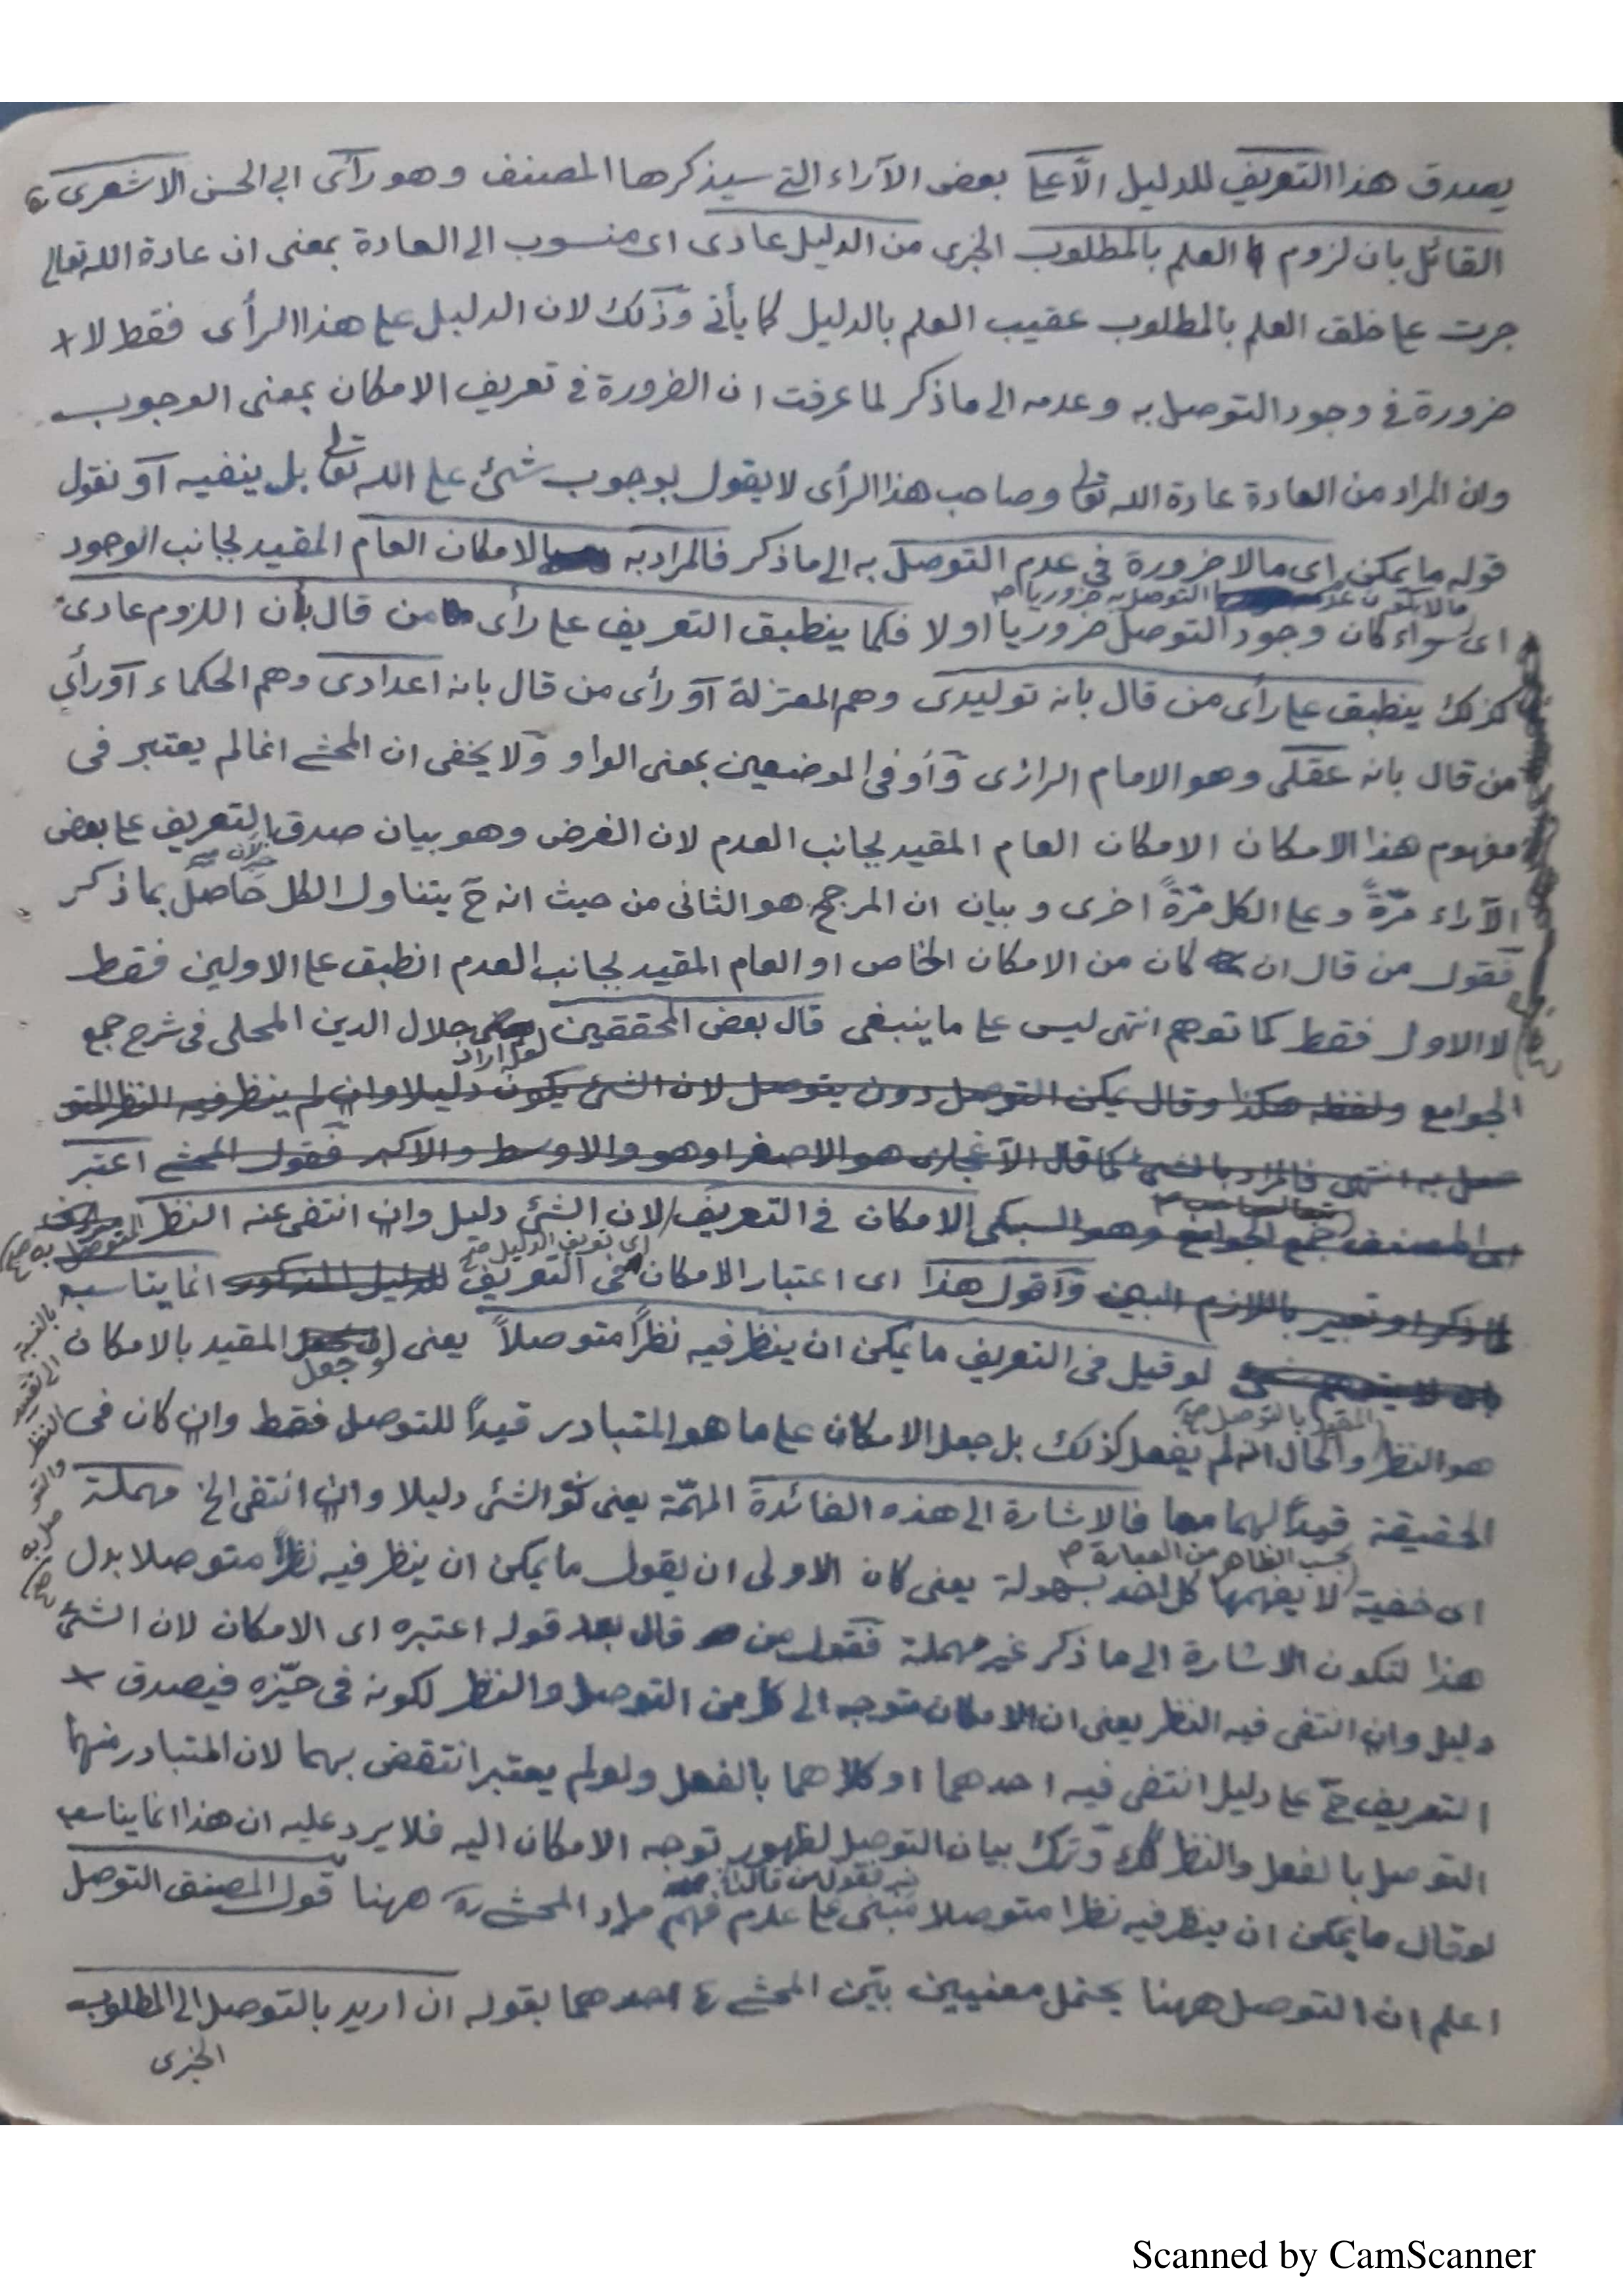 يصدق هذا التعريف للدليل الّا على بعض الآراء التى سيذكرها المصنف وهو رأى ابى الحسن الاشعرى
القائل بان لزوم العلم بالمطلوب الخبرى من الدليل عادى اى منسوب الى العادة بمعنى ان عادة الله تعالى
جرت على خلق العلم بالمطلوب عقيب العلم بالدليل كما يأتى وذلك لان الدليل على هذا الرأى فقط لا
ضرورة فى وجود التوصل به وعدمه الى ما ذكر لما عرفت ان الضرورة فى تعريف الامكان بمعنى الوجوب
وان المراد من العادة عادة الله تعالى وصاحب هذا الرأى لا يقول بوجوب شئ على الله تعالى بل ينفيه او نقول
قوله ما يمكن اى ما لا ضرورة فى عدم التوصل به الى ما ذكر فالمراد به الامكان العام المقيد لجانب الوجود
اى ما لا يكون عدم التوصل به ضروريا
سواء كان وجود التوصل ضروريا اولا فكما ينطبق التعريف على رأى من قال بأن اللزوم عادى
كذلك ينطبق على رأى من قال بانه توليدى وهم المعتزلة او رأى من قال بانه اعدادى وهم الحكماء او رأى
من قال بانه عقلى وهو الامام الرازى وأو فى الموضعين بمعنى الواو ولا يخفى ان المحشى انما لم يعتبر فى
مفهوم هذا الامكان الامكان العام المقيد لجانب العدم لان الغرض وهو بيان صدق التعريف على بعض
الآراء مرّةً وعلى الكل مرّةً اخرى وبيان ان المرجح هو الثانى من حيث انه ح يتناول الكل حاصل بما ذكر
خبر لان
فقول من قال ان كان من الامكان الخاص او العام المقيد لجانب العدم انطبق على الاولين فقط
لا الاول فقط كما توهم انتهى ليس على ما ينبغى قال بعض المحققين لعل اراد جلال الدين المحلى فى شرح جمع
الجوامع ولفظه هكذا وقال يمكن التوصل دون يتوصل لان الشئ يكون دليلا وان لم ينظر فيه النظر المتو
صل به انتهى فالمراد بالشئ كما قال هو الاصغر او هو والاوسط والاكبر فقول المحشى اعتبر
اى المصنف جمع الجوامع وهو السبكى الامكان فى التعريف لان الشئ دليل وان انتفى عنه النظر المتوصل به
باللازم البين واقول هذا اى اعتبار الامكان فى التعريف اى تعريف الدليل للدليل المذكور انما يناسب
لو قيل فى التعريف ما يمكن ان ينظر فيه نظرًا متوصلاً يعنى وجعل المقيد بالامكان
هو النظر المقيد بالتوصل والحال انه لم يفعل كذلك بل جعل الامكان على ما هو المتبادر قيدًا للتوصل فقط وان كان فى
بالنسبة الى تقييد النظر والتوصل به
الحقيقة قيدًا لهما معا فالاشارة الى هذه الفائدة المهمّة يعنى كون الشئ دليلا وان انتفى الخ مهملة
اى خفية لا يفهمها كل احد بسهولة بحسب الظاهر من العبارة يعنى كان الاولى ان يقول ما يمكن ان ينظر فيه نظرًا متوصلا بدل
هذا لتكون الاشارة الى ما ذكر غير مهملة فقول من قال بعد قوله اعتبره اى الامكان لان الشئ
دليل وان انتفى فيه النظر يعنى ان الامكان متوجه الى كل من التوصل والنظر لكونه فى حيّزه فيصدق
التعريف ح على دليل انتفى فيه احدهما او كلاهما بالفعل ولو لم يعتبر انتقض بهما لان المتبادر منهما
التوصل بالفعل والنظر كذلك وترك بيان التوصل لظهور توجه الامكان اليه فلا يرد عليه ان هذا انما يناسب
لو قال ما يمكن ان ينظر فيه نظرا متوصلا مبنى على عدم فهم مراد المحشى ره ههنا قول المصنف التوصل
خبر لقول من قال
اعلم ان التوصل ههنا يحتمل معنيين بيّن المحشى احدهما بقوله ان اريد بالتوصل الى المطلوب
الخبرى
Scanned by CamScanner